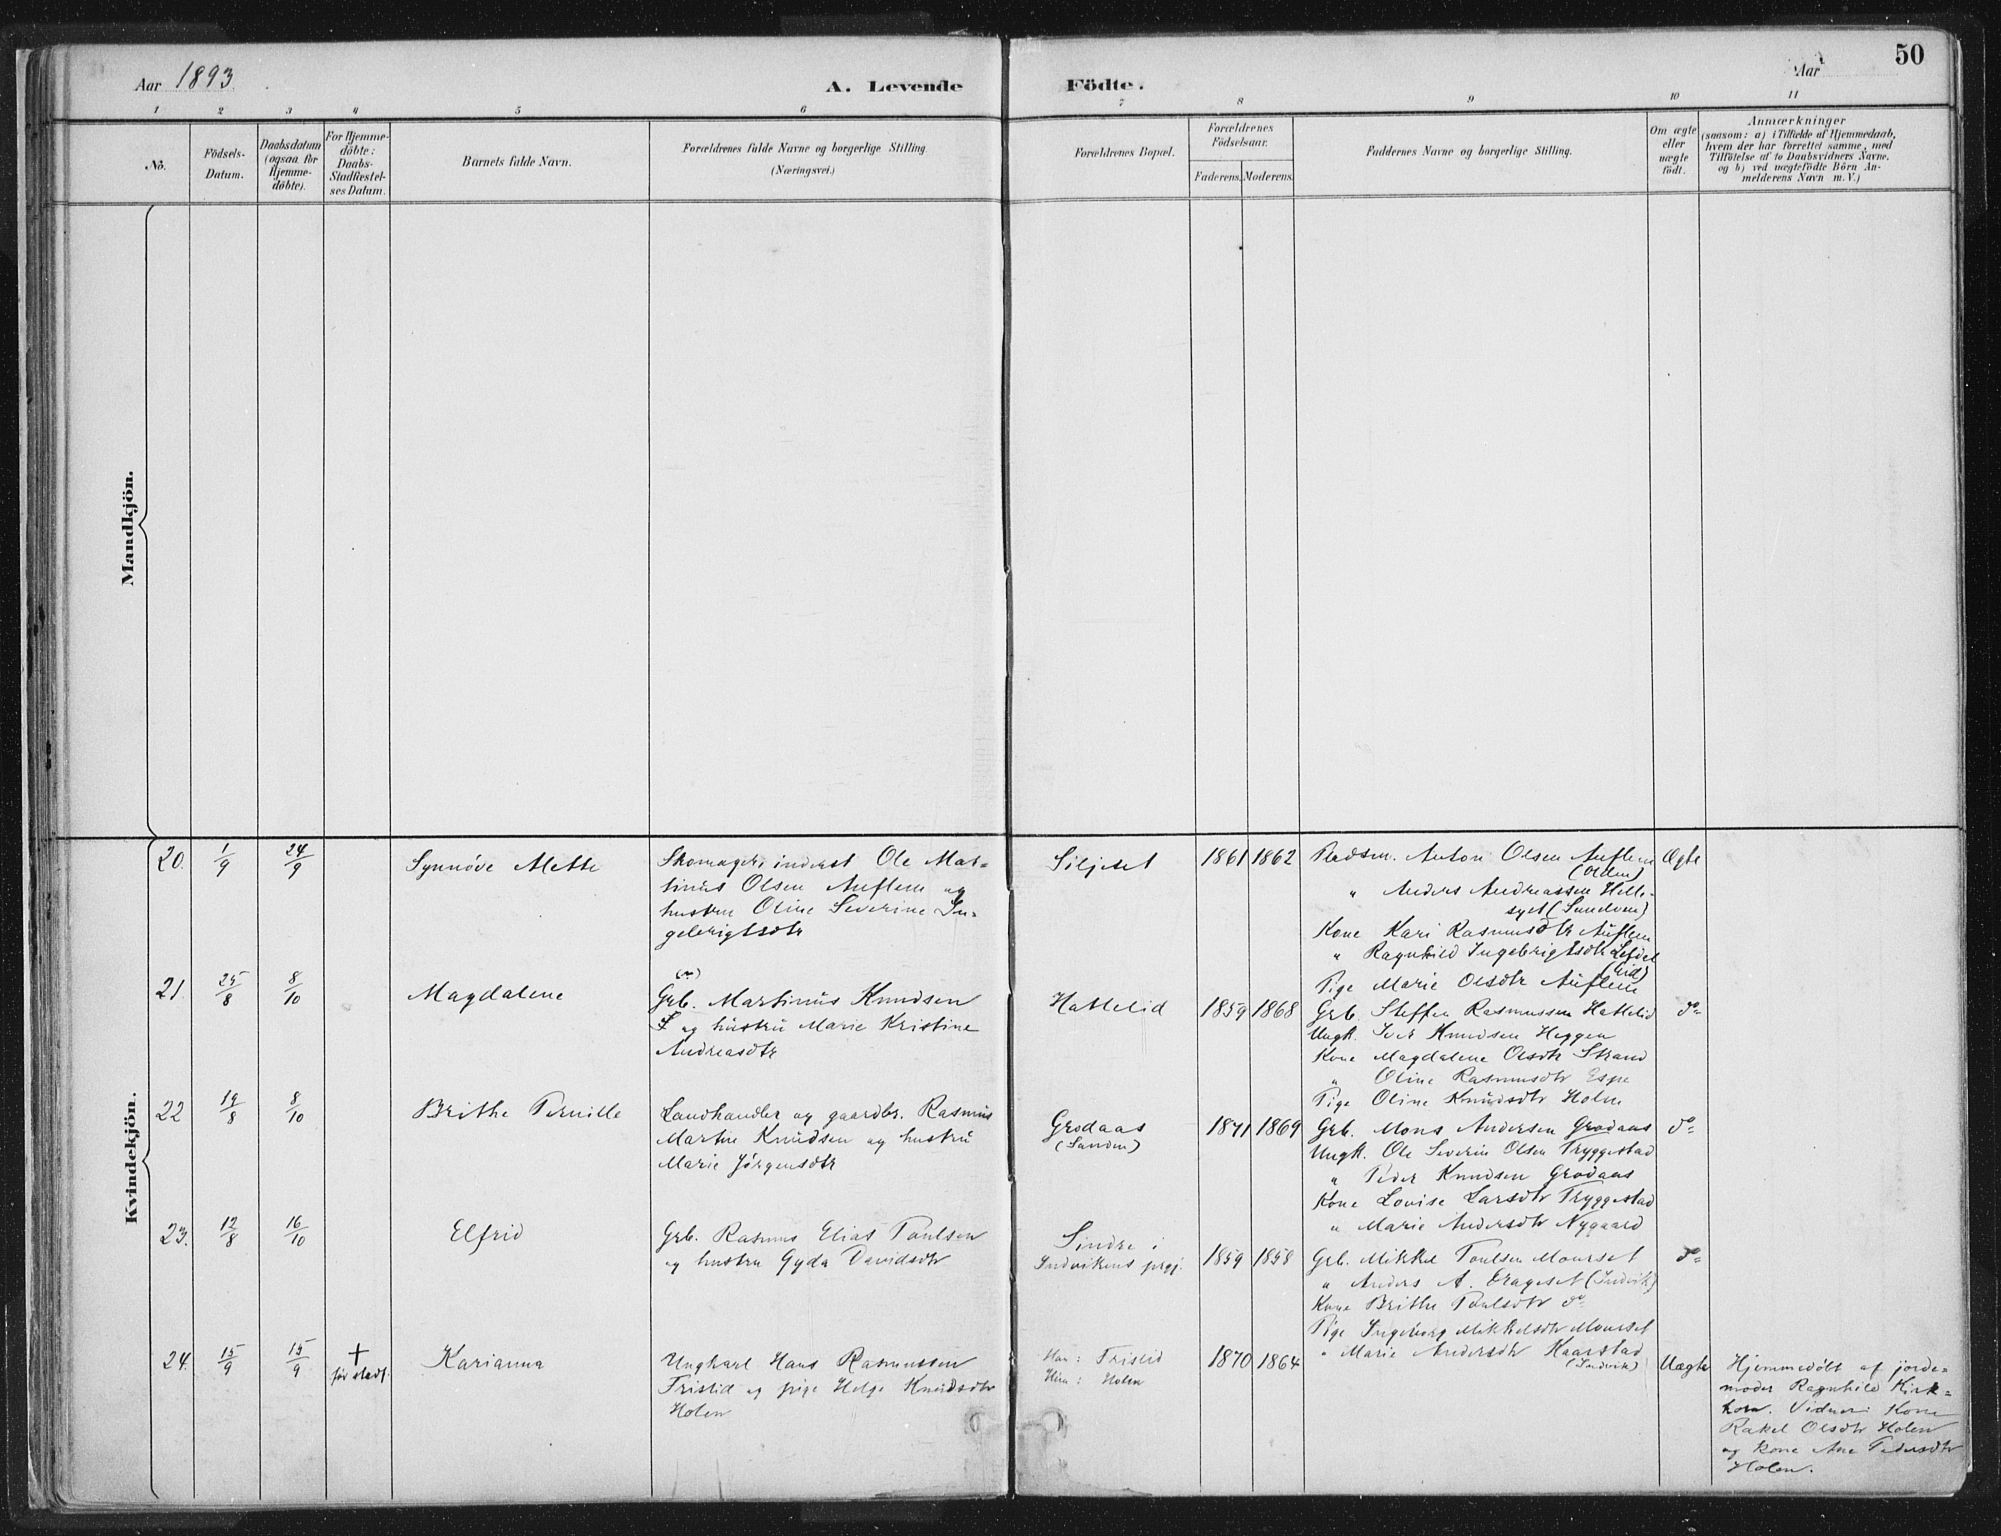 Aar 1893.
A. Levende Födte.
Aar
50
1 2 3 4 5 6 7 8 9 10 11
No.
Födsels-Datum.
Daabsdatum (ogsaa for Hjemmedöbte).
For Hjemmedöbte: Daabs-Stadfæstelses Datum.
Barnets fulde Navn.
Forældrenes fulde Navne og borgerlige Stilling.
(Næringsvei.)
Forældrenes Bopæl.
Forældrenes Födselsaar.
Faderens. Moderens.
Faddernes Navne og borgerlige Stilling.
Om ægte eller uægte födt.
Anmærkninger
(saasom: a) i Tilfælde af Hjemmedaab,
hvem der har forrettet samme, med
Tilföielse af to Daabsvidners Navne,
og b) ved uægtefödte Börn An-
melderens Navn m. V.)
Mandkjön.
Kvindekjön.
20. 1/9 24/9 Synnöve Mette
Skomager, inderst Ole Mar-
tinus Olsen Auflem og
hustru Oline Severine In-
gebrigtsdtr
Siljeset 1861 1862
Pladsm. Anton Olsen Auflem
(Olden)
" Anders Andreassen Helle-
syet (Sundven)
Kone Kari Rasmusdtr Auflem
" Ragnhild Ingebrigtsdtr Lefdal
(Eid)
Pige Marie Olsdtr Auflem
Ægte
21. 25/8 8/10 Magdalene
Grb. Martinus Knudsen
S og hustru Marie Kristine
Andreasdtr
Hattelid 1859 1868
Grb. Steffen Rasmussen Hattelid
Ungk. Iver Knudsen Heggen
Kone Magdalene Olsdtr Strand
" Oline Rasmusdtr Espe
Pige Oline Knudsdtr Holen
do
22 19/8 8/10 Brithe Pernille
Landhandler og gaardbr. Rasmus
Martin Knudsen og hustru
Marie Jörgensdtr
Grodaas
1871 1869
Grb. Mons Andersen Grodaas
Ungk. Ole Severin Olsen Tryggestad
" Peder Knudsen Grodaas
Kone Lovise Larsdtr Tryggestad
" Marie Andersdtr Nygaard
do
23. 12/8 16/10 Elfrid
Grb. Rasmus Elias Paulsen
og hustru Gyda Davidsdtr
Sindre i
Indvikens prgj.
1859 1858
Grb. Mikkel Paulsen Mourset
" Anders A. Drageset (Indvik)
Kone Brithe Paulsdtr do
Pige Ingeborg Mikkelsdtr Mourset
" Marie Andersdtr Haarstad
(Indvik)
do
24. 15/9 15/9 + för stadf.
Karianna
Ungkarl Hans Rasmussen
Tristid og pige Helge Knudsdtr
Holen
Han: Tristid
Hun: Holen
1870 1864
Uægte
Hjemmedöbt af jorde-
moder Ragnhild Kirk-
horn. Vidner: Kone
Rakel Olsdtr Holen
og kone Ane Pedersdtr
Holen.